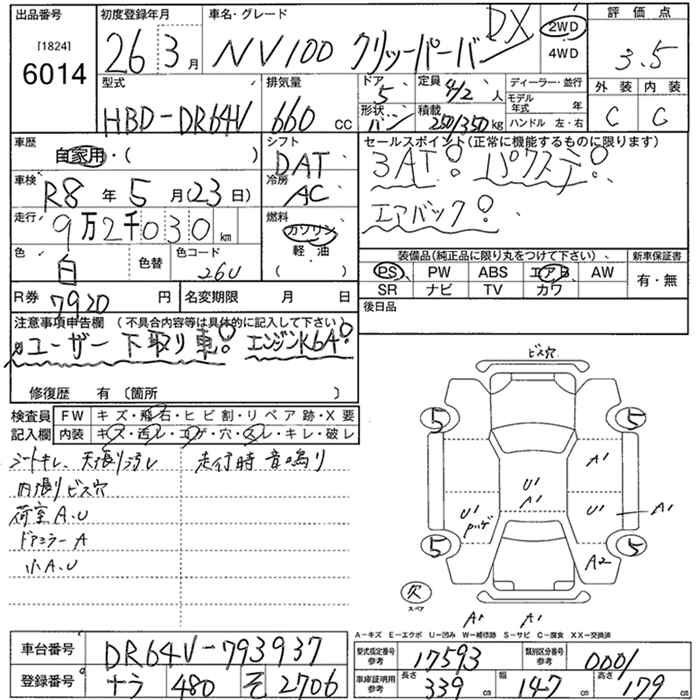 出品番号 初度登録年月 車名・グレード 評価点
[1824] 6014 26年3月 NV100 クリッパーバン DX 2WD 4WD 3.5
型式 排気量 ドア 5 定員 4/2人 ディーラー・並行 外装 内装
HBD-DR64V 660cc 形状 バン 積載 250/350kg モデル年式 年 ハンドル 左・右 C C
車歴 自家用・( ) シフト DAT セールスポイント(正常に機能するものに限ります)
3AT! パワステ! エアバック!
車検 R8年5月(23日) 冷房 AC
走行 9万2千030km 燃料 ガソリン 軽・油 ( )
色 白 色替 色コード 26U
装備品(純正品に限り丸をつけて下さい) 新車保証書
PS PW ABS エアB AW 有・無
SR ナビ TV カワ
R券 7920円 名変期限 月 日 後日品
注意事項申告欄 (不具合内容等は具体的に記入して下さい)
ユーザー下取り車! エンジンK6A!
修復歴 有 〔箇所 〕
検査員記入欄 FW キズ・飛石・ヒビ割・リペア跡・X要
内装 キズ・汚レ・コゲ・穴・スレ・キレ・破レ
シートキレ、天張り汚レ 走行時 音鳴り
内張りビス穴
荷室A.U
ドアミラーA
小A.U
ビス穴
5 5
A' U' A' U' A' U' ハゲ
5 5
A2
欠 スペア
A' A'
A-キズ E-エクボ U-凹み W-補修跡 S-サビ C-腐食 XX-交換済
車台番号 DR64V-793937 型式指定番号 参考 17593 類別区分番号 参考 0001
登録番号 ナラ 480 そ 2706 車庫証明用 参考 長さ 339cm 幅 147cm 高さ 179cm